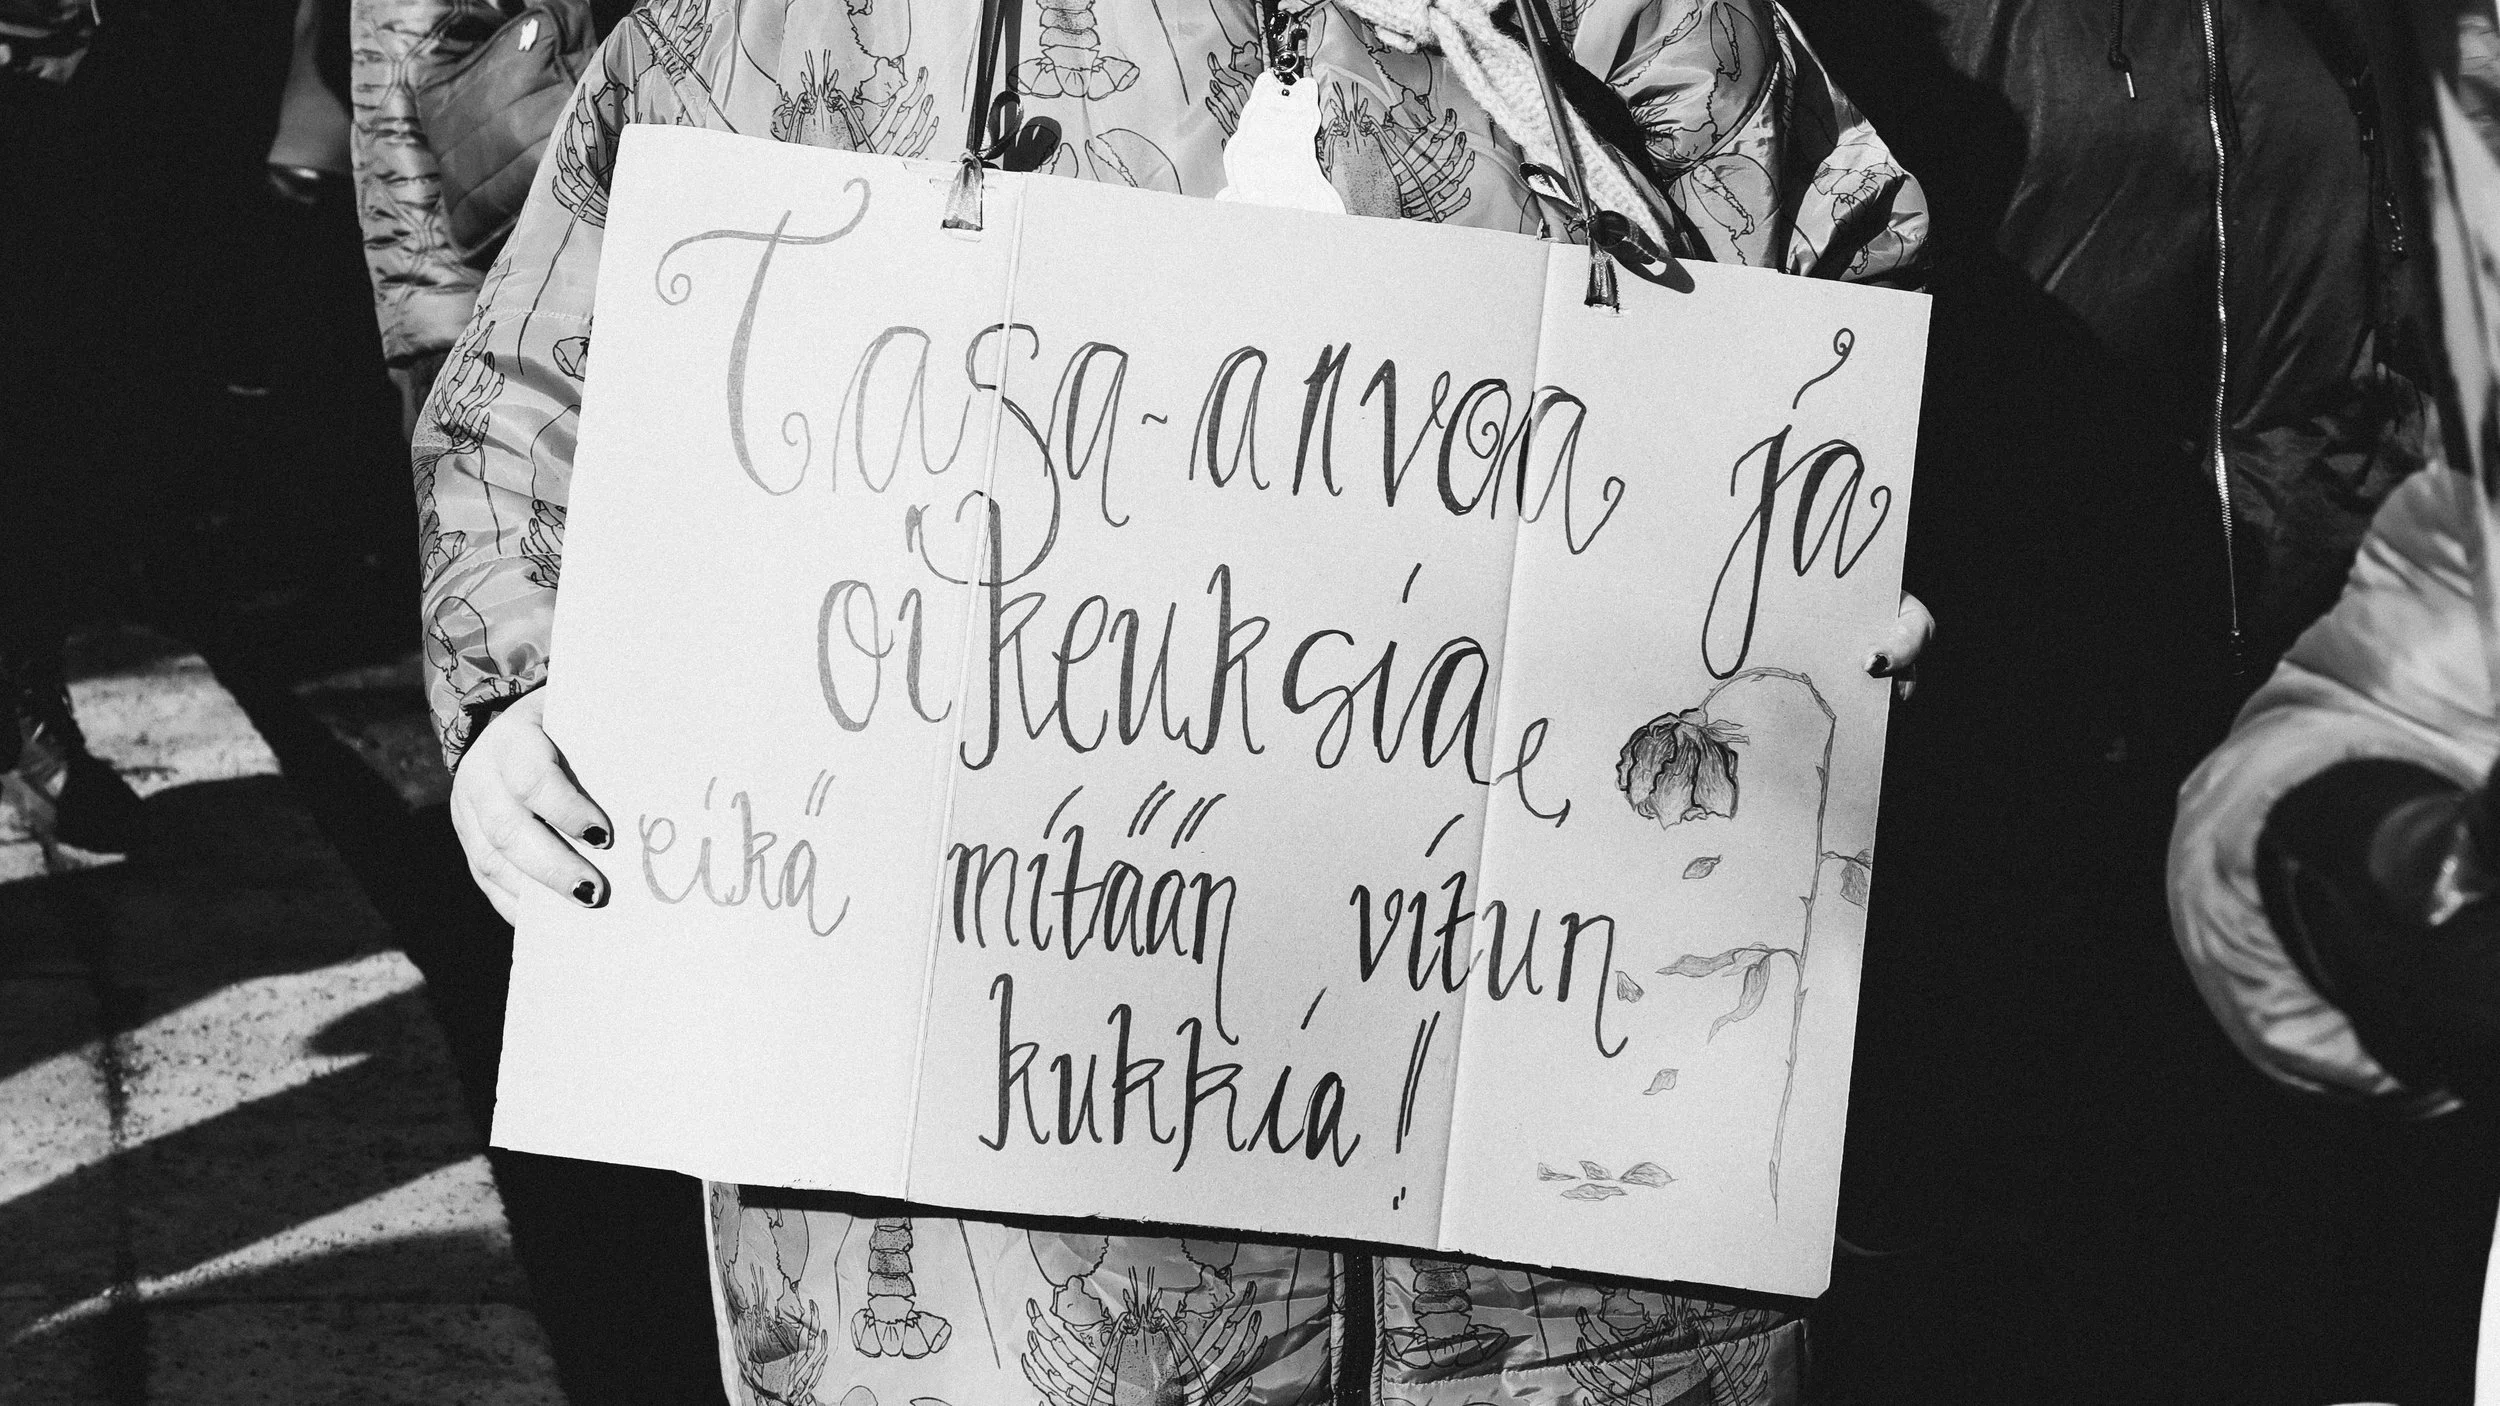 Tasa-arvoa ja
oikeuksia,
eikä mitään vitun
kukkia!